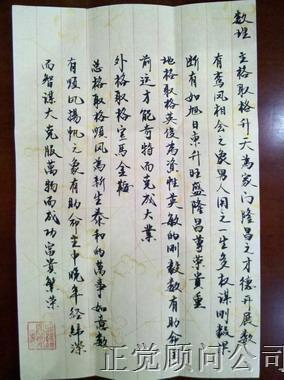 数理 主格取格升天为家门隆昌之才德开展数
有鸾凤相会之象男人用之一生多权谋刚毅果
断有如旭日东升旺盛隆昌尊荣贵重
地格取格英俊为资性英敏的刚毅数有助命
前运才能奇特而克成大业
外格取格宝马金梅
总格取格顺风为新生泰和的万事如意数
有顺风扬帆之象有助命主中晚年经纬深
而智谋大克服万物而成功富贵繁荣
正觉顾问公司